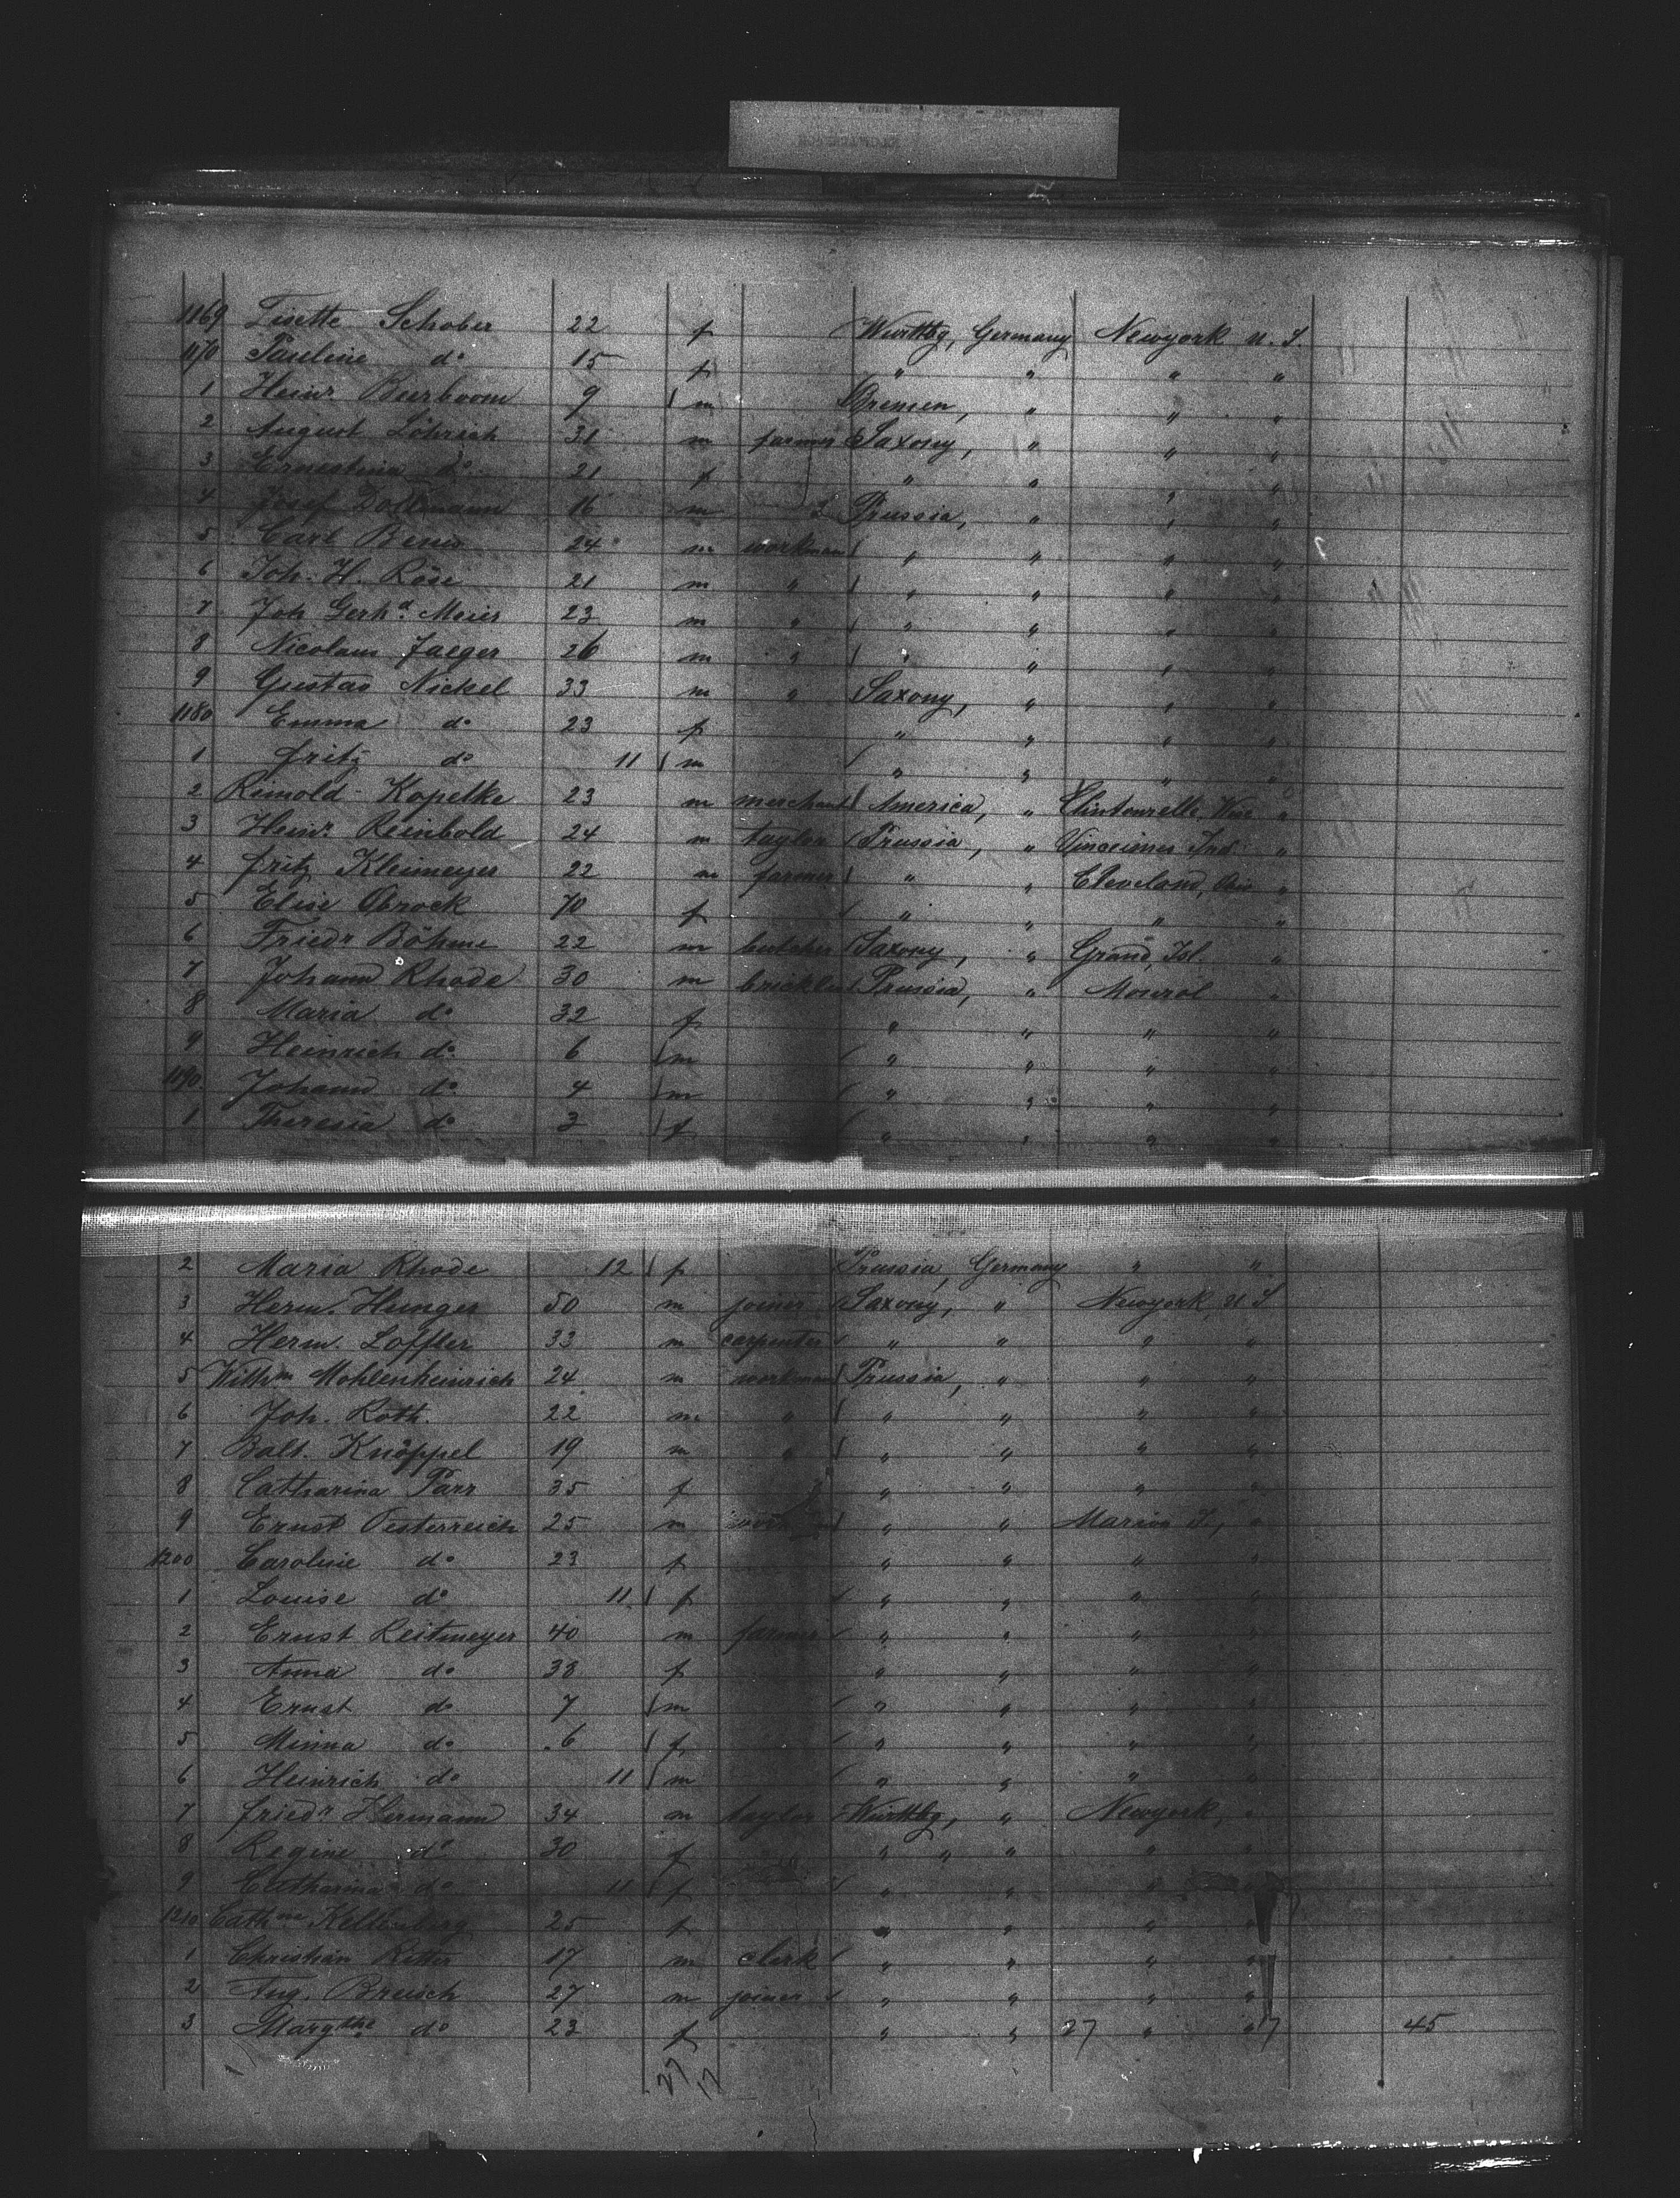 1169 Lisette Schober 22 f Württbg, Germany Newyork U. S.
1170 Pauline do 15 f " " " "
1 Heinr. Beerboom 9 m Bremen, " " "
2 August Löhrich 31 m farmer Saxony, " " "
3 Ernestina do 21 f " " " "
4 Josef Dollmann 16 m Prussia, " " "
5 Carl 24 m workman " " " "
6 Joh. H. Röse 21 m " " " " "
7 Joh Gerhd. Meier 23 m " " " " "
8 Nicolaus Jaeger 26 m " " " " "
9 Gustav Nickel 33 m " Saxony, " " "
1180 Emma do 23 f " " " "
1 Fritz do 11 m " " " "
2 Reinold Kopelke 23 m merchant America, " "
3 Heinr. Reinbold 24 m taylor Prussia, " Ind. "
4 Fritz Kleimeyer 22 m farmer " " Cleveland, "
5 Elise Obrock 70 f " " " "
6 Friedr Böhme 22 m butcher Saxony, " Grand, Isl. "
7 Johann Rhode 30 m Prussia, " "
8 Maria do 32 f " " " "
9 Heinrich do 6 m " " " "
1190 Johann do 4 m " " " "
1 Theresia do 3 f " " " "
2 Maria Rhode 12 f Prussia, Germany " "
3 Herm. Hunger 50 m joiner Saxony, " Newyork, U S
4 Herm. Loffler 33 m carpenter " " " "
5 Wilhm Mohlenheinrich 24 m workman Prussia, " " "
6 Joh. Roth. 22 m " " " " "
7 Balt. Knöppel 19 m " " " " "
8 Catharina Parr 35 f " " " "
9 Ernst Oesterreich 25 m " " "
1200 Caroline do 23 f " " " "
1 Louise do 11 f " " " "
2 Ernst Reitmeyer 40 m farmer " " " "
3 Anna do 38 f " " " "
4 Ernst do 7 m " " " "
5 Minna do 6 f " " " "
6 Heinrich do 11 m " " " "
7 Friedr Hermann 34 m taylor Württbg, " Newyork, "
8 Regine do 30 f " " " " "
9 Catharina do 11 f " " " "
1210 Cathne 25 f " " " "
1 Christian Ritter 17 m clerk " " " "
2 Aug. Breisch 27 m joiner " " " "
3 Margthe do 23 f " " 27 " " 17 45
27 17